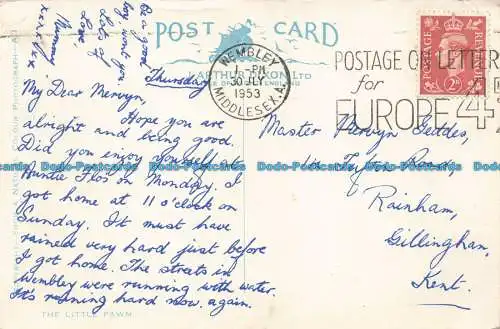 POST CARD
ARTHUR DIXON Ltd
WEMBLEY
1 - PM
30 JLY
1953
MIDDLESEX.A.
POSTAGE ON LETTERS
for
EUROPE 4
POSTAGE REVENUE
2D
Be a good
boy won't you
Lots of
love
Mummy
xxxxxx
Thursday
My Dear Mervyn,
Hope you are
alright and being good.
Did you enjoy yourself at
Auntie Flo's on Monday. I
got home at 11 o'clock on
Sunday. It must have
rained very hard just before
I got home. The streets in
Wembley were running with water.
It's raining hard now. again.
Master Mervyn Geddes,
Road,
Rainham,
Gillingham,
Kent.
THE LITTLE FAWN
Postcards